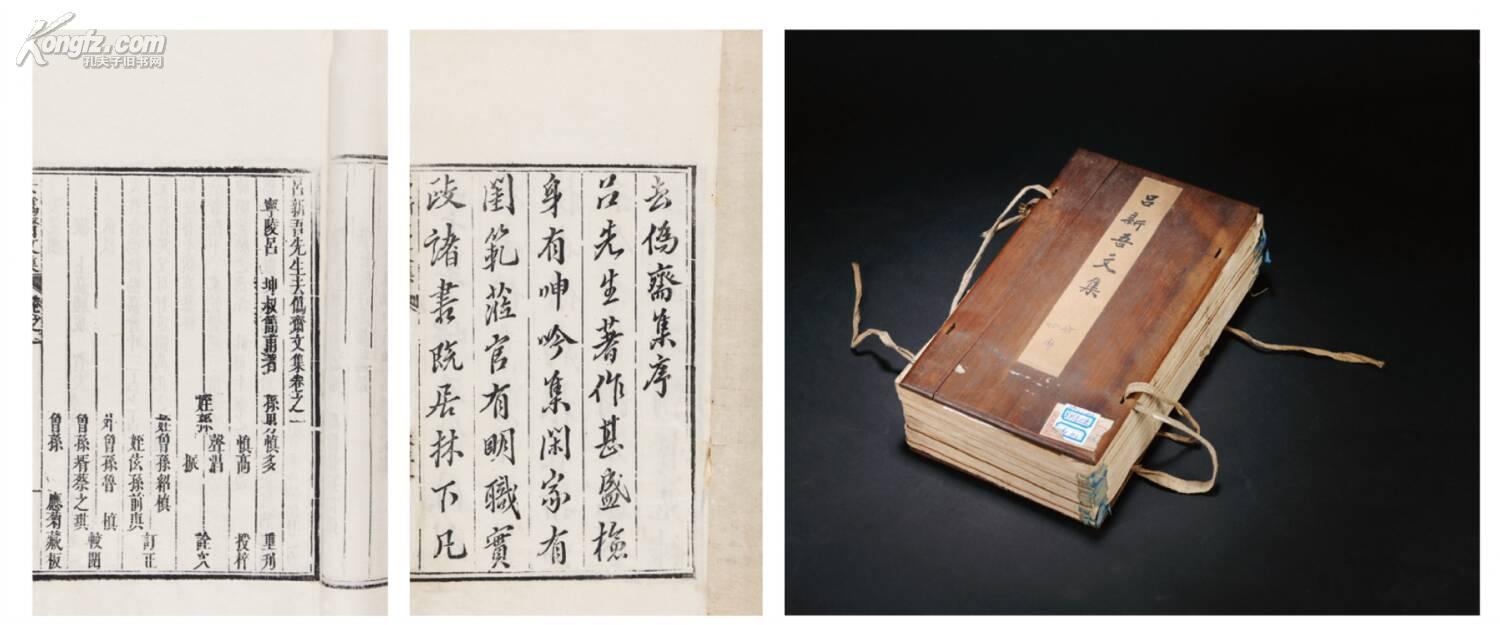 Kongfz.com
孔夫子旧书网
呂新吾先生去僞齋文集卷之一
寧陵呂 坤叔簡甫著 孫男慎多 重刊
慎高 授梓
聲潟
姪孫 振 詮次
姪曾孫紹慎
姪伭孫前輿 訂正
外曾孫魯 慎
曾孫壻蔡之琪 較閱
曾孫 應菊藏板
去僞齋集序
呂先生著作甚盛檢
身有呻吟集閑家有
閨範蒞官有明職實
政諸書既居林下凡
呂新吾文集